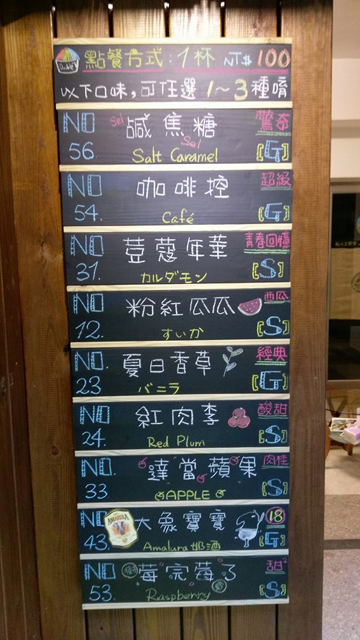 點餐方式:1杯 NT$100
以下口味,可任選1~3種唷
NO 56. 鹹焦糖 驚奇
Salt Caramel [G]
NO 54. 咖啡控 超級
Café [G]
NO 31. 荳蔻年華 青春回憶
カルダモン [S]
NO. 12. 粉紅瓜瓜 西瓜
すいか [S]
NO. 23 夏日香草 經典
バニラ [G]
NO 24. 紅肉李 酸甜
Red Plum [S]
NO. 33 達當蘋果 肉桂
APPLE [S]
NO. 43. 大象寶寶 18
AMARULA Amalura奶酒 [G]
NO 53. 莓完莓了 甜
Raspberry [S]